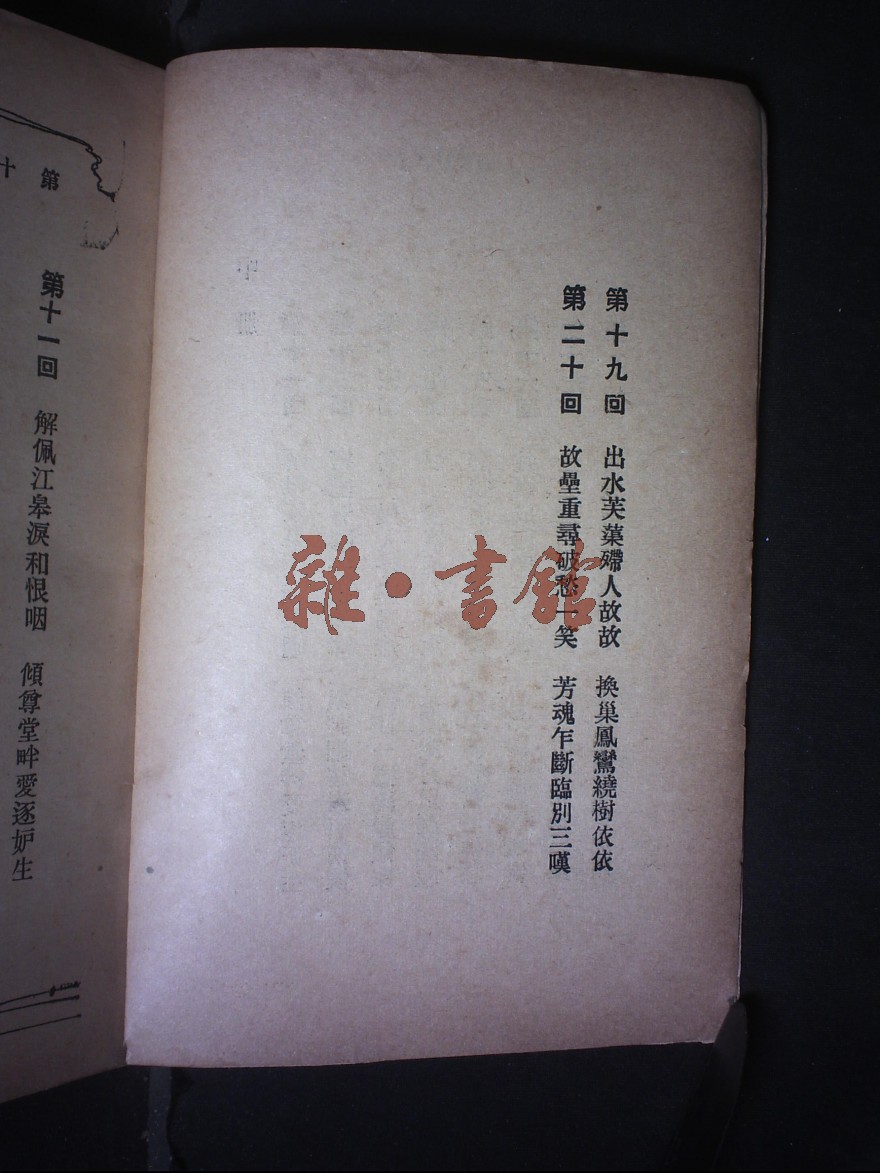 第十九回　出水芙蕖殢人故故　換巢鳳鸞繞樹依依
第二十回　故壘重尋破愁一笑　芳魂乍斷臨別三嘆
雜·書館
第十
第十一回　解佩江皋淚和恨咽　傾尊堂畔愛逐妒生